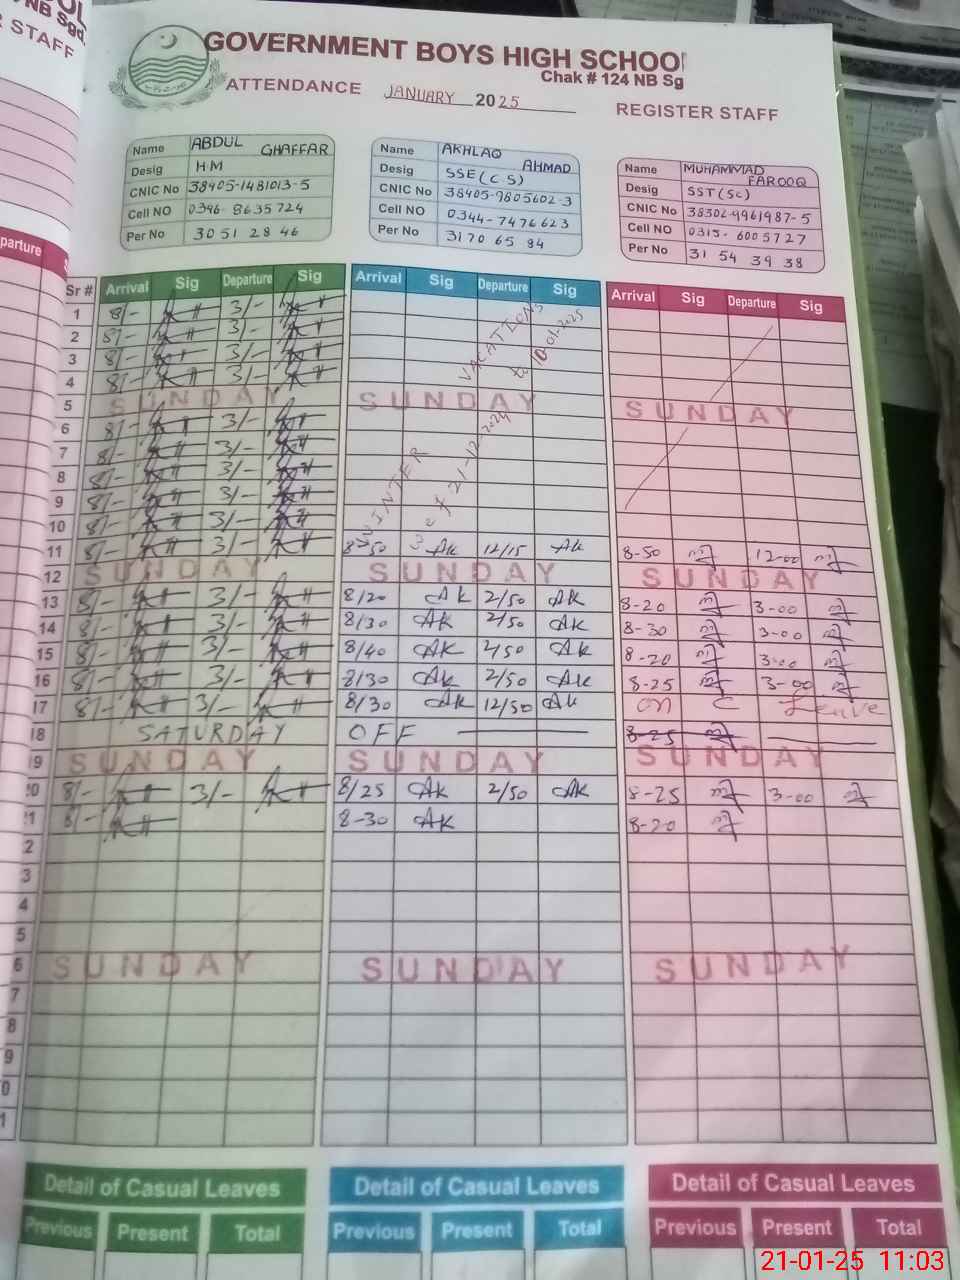 GOVERNMENT BOYS HIGH SCHOO
Chak # 124 NB Sg
ATTENDANCE JANUARY 2025 REGISTER STAFF
NB Sgd.
R STAFF
Name ABDUL GHAFFAR
Desig HM
CNIC No 38405-1481013-5
Cell NO 0346-8635724
Per No 30512846
Name AKHLAQ AHMAD
Desig SSE(CS)
CNIC No 38405-9805602-3
Cell NO 0344-7476623
Per No 31706594
Name MUHAMMAD FAROOQ
Desig SST(SC)
CNIC No 38302-9961987-5
Cell NO 0315-6005727
Per No 31543938
parture
Sr # Arrival Sig Departure Sig Arrival Sig Departure Sig Arrival Sig Departure Sig
1 8/- 3/-
2 8/- 3/-
3 8/- 3/-
4 8/- 3/-
5 SUNDAY SUNDAY SUNDAY
6 8/- 3/-
7 8/- 3/-
8 8/- 3/-
9 8/- 3/-
10 8/- 3/-
WINTER VACATIONS
21-12-2024 to 10-01-2025
11 8/- 3/- 8/50 AK 12/15 AK 8-50 12-00
12 SUNDAY SUNDAY SUNDAY
13 8/- 3/- 8/20 AK 2/50 AK 8-20 3-00
14 8/- 3/- 8/30 AK 2/50 AK 8-30 3-00
15 8/- 3/- 8/40 AK 2/50 AK 8-20 3-00
16 8/- 3/- 8/30 AK 2/50 AK 8-25 3-00
17 8/- 3/- 8/30 AK 12/50 AK on C Leave
18 SATURDAY OFF 8-25
9 SUNDAY SUNDAY SUNDAY
20 8/- 3/- 8/25 AK 2/50 AK 8-25 3-00
1 8/- 8-30 AK 8-20
2
3
4
5
6 SUNDAY SUNDAY SUNDAY
7
8
9
0
1
Detail of Casual Leaves Detail of Casual Leaves Detail of Casual Leaves
Previous Present Total Previous Present Total Previous Present Total
21-01-25 11:03